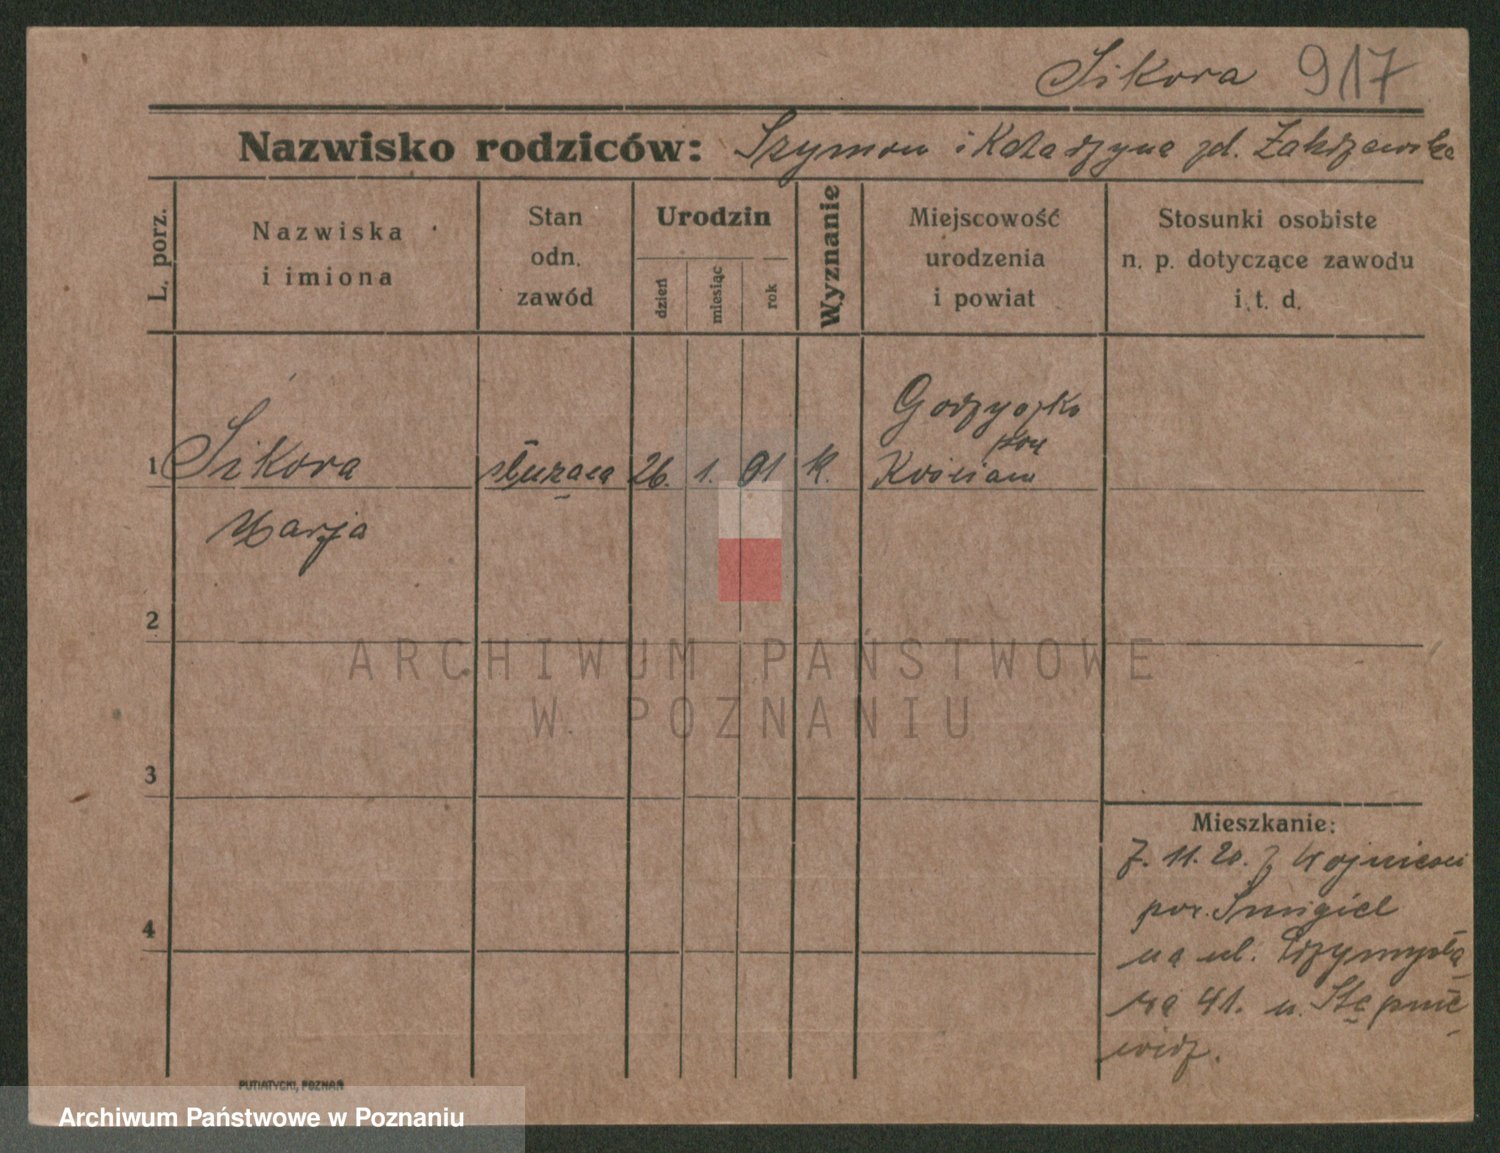 Sikora 917
Nazwisko rodziców: Szymon i Katarzyna zd. Zakrzewska
L. porz.
Nazwiska
i imiona
Stan
odn.
zawód
Urodzin
dzień
miesiąc
rok
Wyznanie
Miejscowość
urodzenia
i powiat
Stosunki osobiste
n. p. dotyczące zawodu
i. t. d.
1 Sikora służąca 26. 1. 91 k.
pow
Kościan
Marja
2
ARCHIWUM PAŃSTWOWE
W POZNANIU
3
Mieszkanie:
7. 11. 20. z Wojnieści
pow. Śmigiel
4
na ul. Przemysło
wa 41. u.
PUTIATYCKI, POZNAŃ
Archiwum Państwowe w Poznaniu